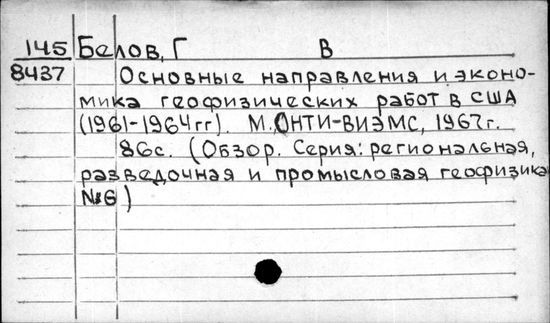 145 Белов, Г В
8437 Основные направления и эконо-
мика геофизических работ в США
(1961-1964гг). М. ОНТИ-ВИЭМС, 1967г.
86с. (Обзор. Серия: региональная,
разведочная и промысловая геофизика
№6)